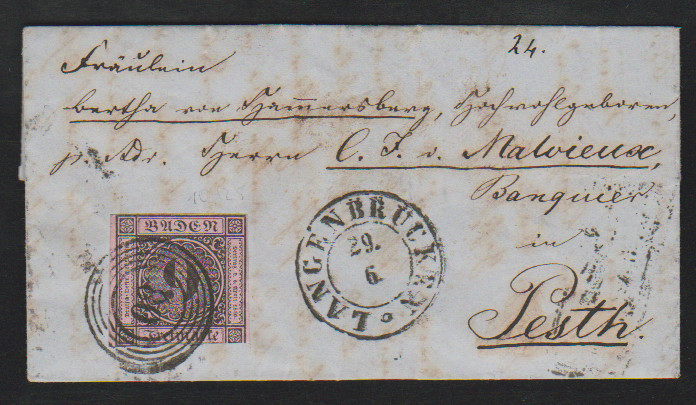 24.
Fräulein
Bertha von Hammersberg, Hochwohlgeboren,
p. Adr. Herrn C. F. v. Malvieux,
Banquier
in
Pesth.
BADEN
Freimarke
LANGENBRÜCKEN
29.
6.